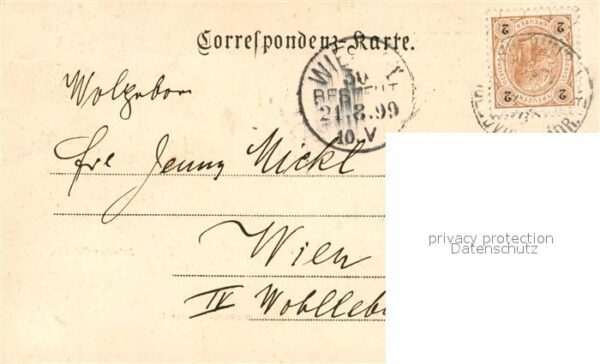 Correspondenz-Karte.
2 2
WIEN
30
BESTELLT
21.8.99
10.V
Wolgeborn
Frl Jenny Mickl
Wien
IV Wohlleb
privacy protection
Datenschutz